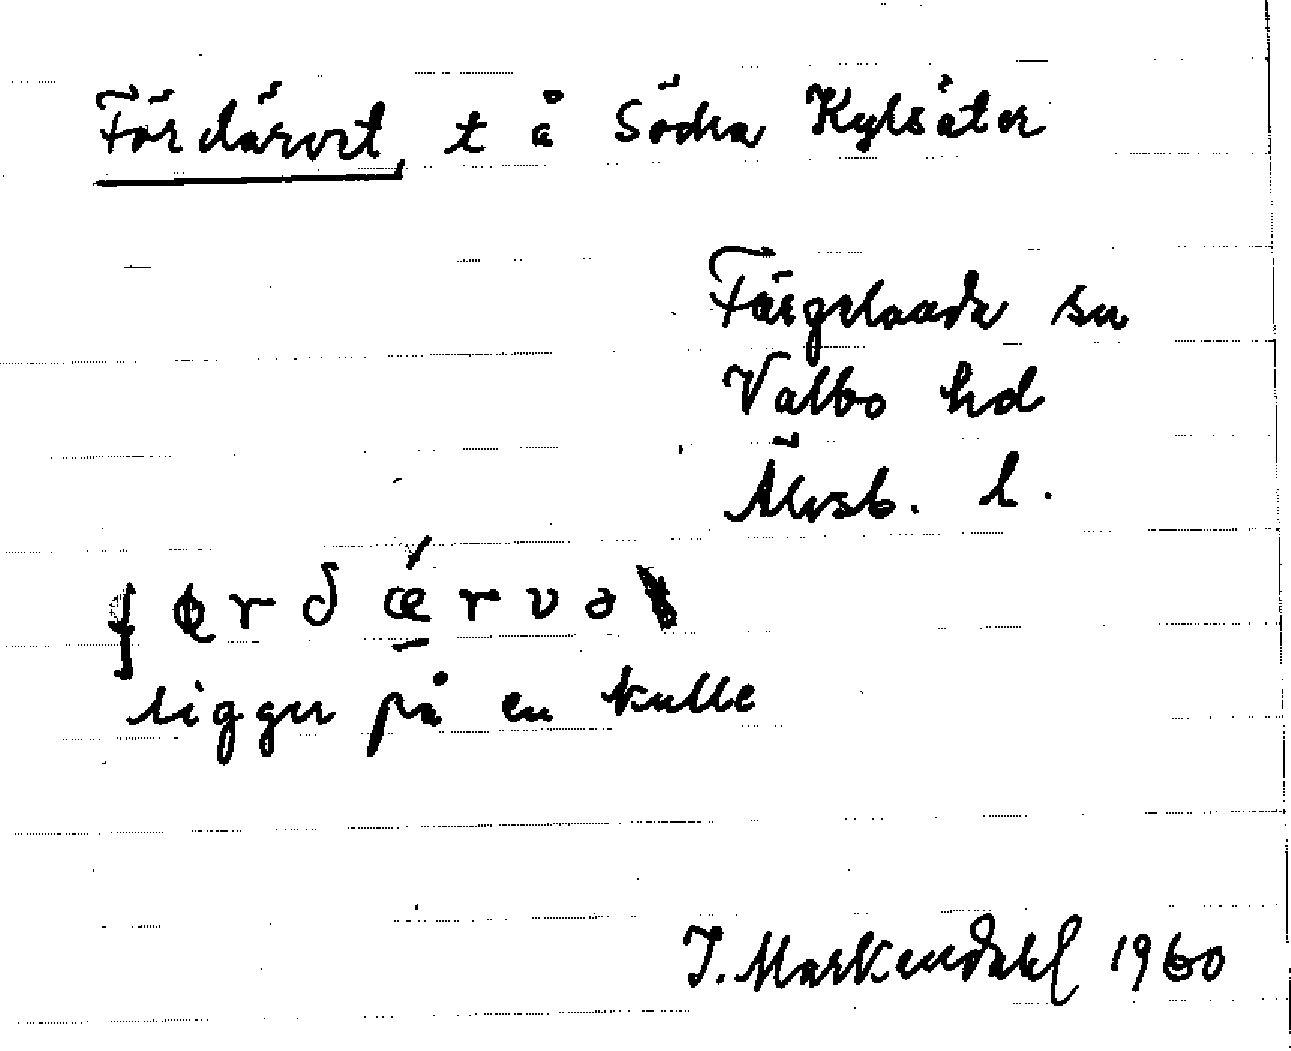 Fördärvet, t å Södra Kylsäter
Färgelanda sn
Valbo hd
Älvsb. l.
fɵrdǽrvə
ligger på en kulle
J. Markendahl 1960